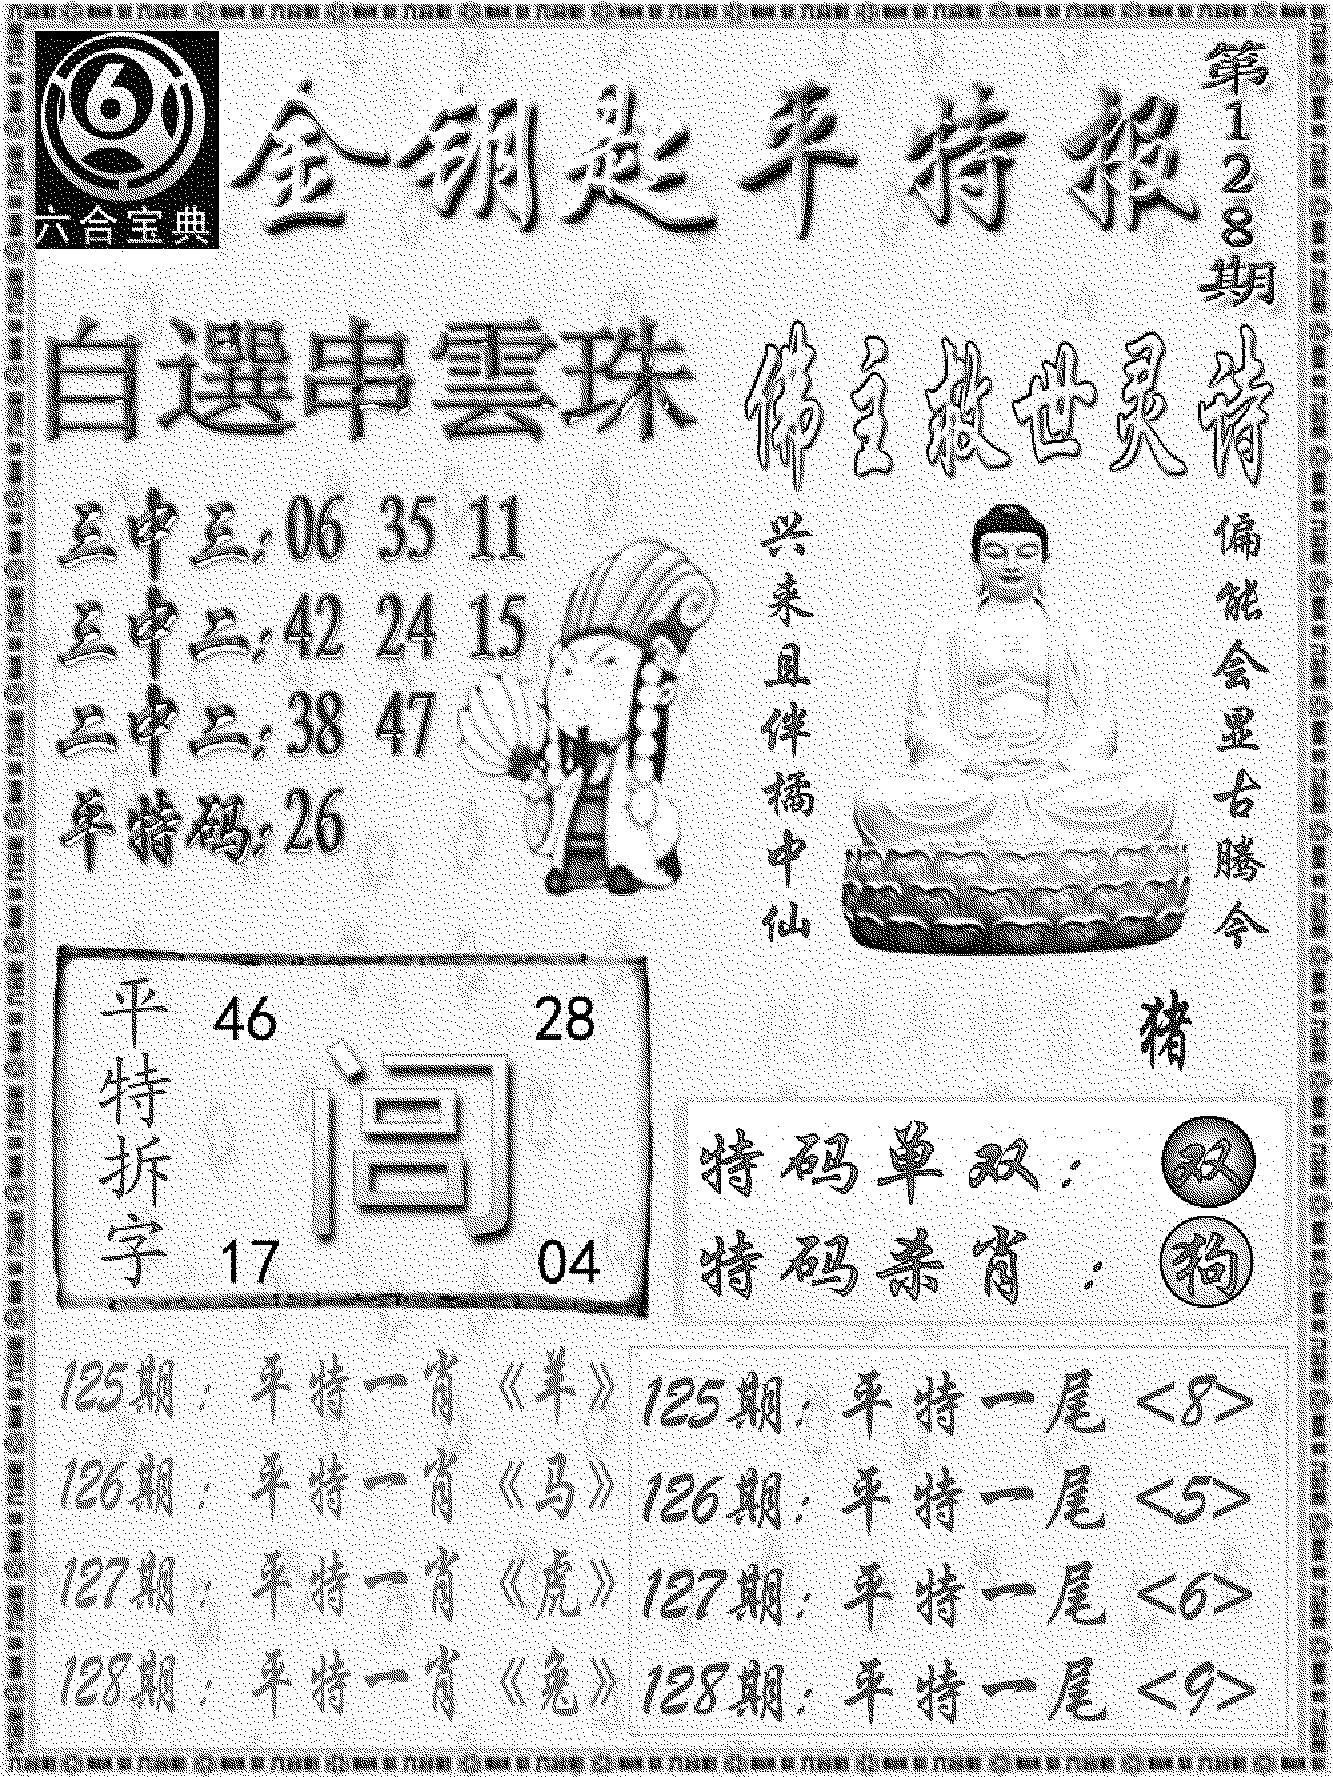 6
六合宝典
金钥匙平特报
第128期
自選串雲珠
三中三: 06 35 11
三中二: 42 24 15
二中二: 38 47
平特码: 26
佛主救世灵诗
偏能会显古腾今
兴来且伴橘中仙
猪
平特拆字
46 28
闾
17 04
特码单双: 双
特码杀肖: 狗
125期: 平特一肖《羊》
126期: 平特一肖《马》
127期: 平特一肖《虎》
128期: 平特一肖《兔》
125期: 平特一尾 <8>
126期: 平特一尾 <5>
127期: 平特一尾 <6>
128期: 平特一尾 <9>